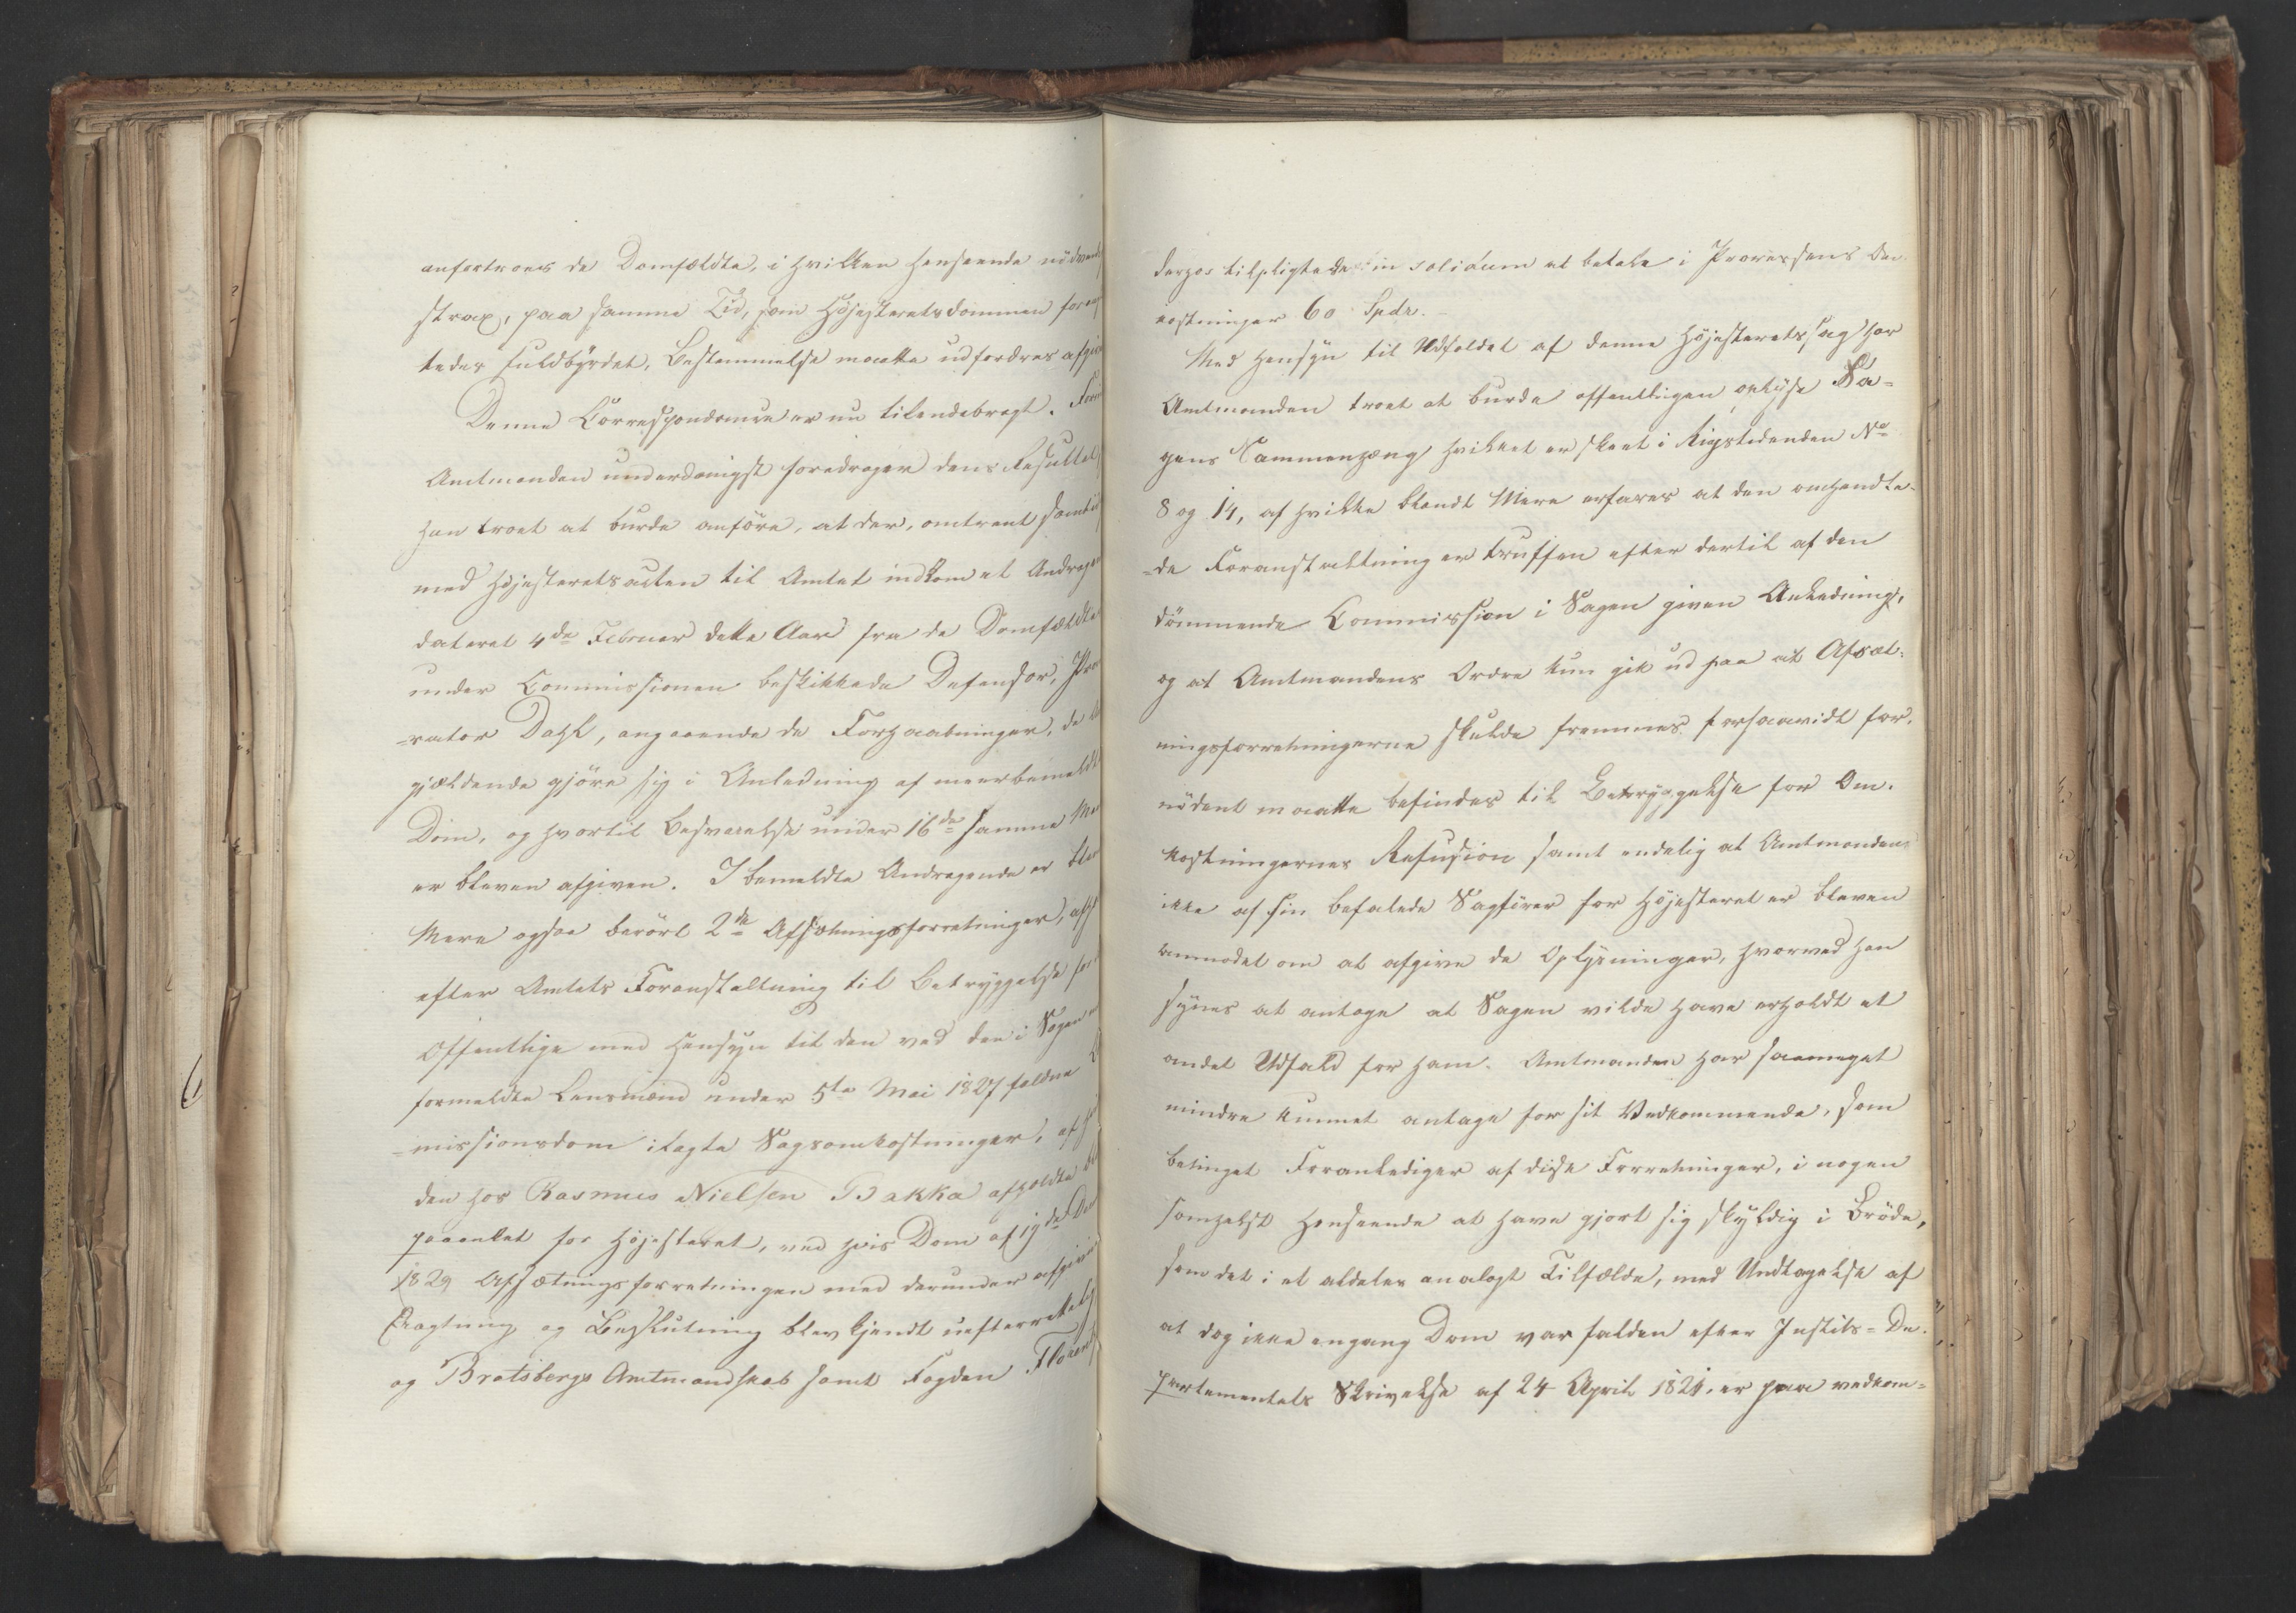 anfortroes de Domfældte, i hvilken Henseende nödvend
strax, paa samme Tid, som Höjesteretsdommen foran
tedes fuldbyrdet, Bestemmelse maatte udfordres afgiv
Denne Correspondence er nu tilendebragt. Forin
Amtmanden underdanigst foredrager dens Resultat,
han troet at burde anföre, at der, omtrent samtid
med Höjesteretsacten til Amtet indkom et Andragen
dateret 4de Februar dette Aar fra de Domfældte
under Commissionen beskikkede Defensor, Proc
-rator Dahl, angaaende de Forhaabninger, de
gjældende gjöre sig i Anledning af meerbemeldt
Dom, og hvortil Besvarelse under 16de samme
er bleven afgiven. I bemeldte Andragende er blan
Mere ogsaa berört 2de Afsætningsforretninger,
efter Amtets Foranstaltning til Betryggelse for
Offentlige med Hensyn til den ved den i Sagen
formeldte Lensmænd under 5te Mai 1827 faldne
-missionsdom ilagte Sagsomkostninger, af
den hos Rasmus Nielsen Bakka afholdte
paaanket for Höjesteret, ved hvis Dom af
1829 Afsætningsforretningen med derunder afgivne
Eragtning og Beslutning blev kjendt uefterrettelig
og Bratsbergs Amtmandskab samt Fogden Floren
derhos tilpligtede in solidum at betale i Processens Om
kostninger 60 Spdr.
Med Hensyn til Udfaldet af denne Höjesteretssag har
Amtmanden troet at burde offentligen oplyse Sa=
gens Sammenhæng hvilket er skeet i Rigstidenden No
8 og 14, af hvilke blandt Mere erfares at den omhandle-
-de Foranstaltning er truffen efter dertil af den
dömmende Commission i Sagen given Anledning,
og at Amtmandens Ordre kun gik ud paa at Afsæt-
ningsforretningerne skulde fremmes forsaavidt for.
nödent maatte befindes til Betryggelse for Om.
kostningernes Refusion samt endelig at Amtmanden
ikke af sin befalede Sagförer for Höjesteret er bleven
anmodet om at afgive de Oplysninger, hvorved han
synes at antage at Sagen vilde have erholdt et
andet Udfald for ham. Amtmanden har saameget
mindre kunnet antage for sit Vedkommende, som
betinget Foranlediger af disse Forretninger, i nogen
somhelst Henseende at have gjort sig skyldig i Bröde,
som det i et aldeles analogt Tilfælde, med Undtagelse af
at dog ikke engang Dom var falden efter Justits=De.
partementets Skrivelse af 24 April 1821. er paa vedkom=